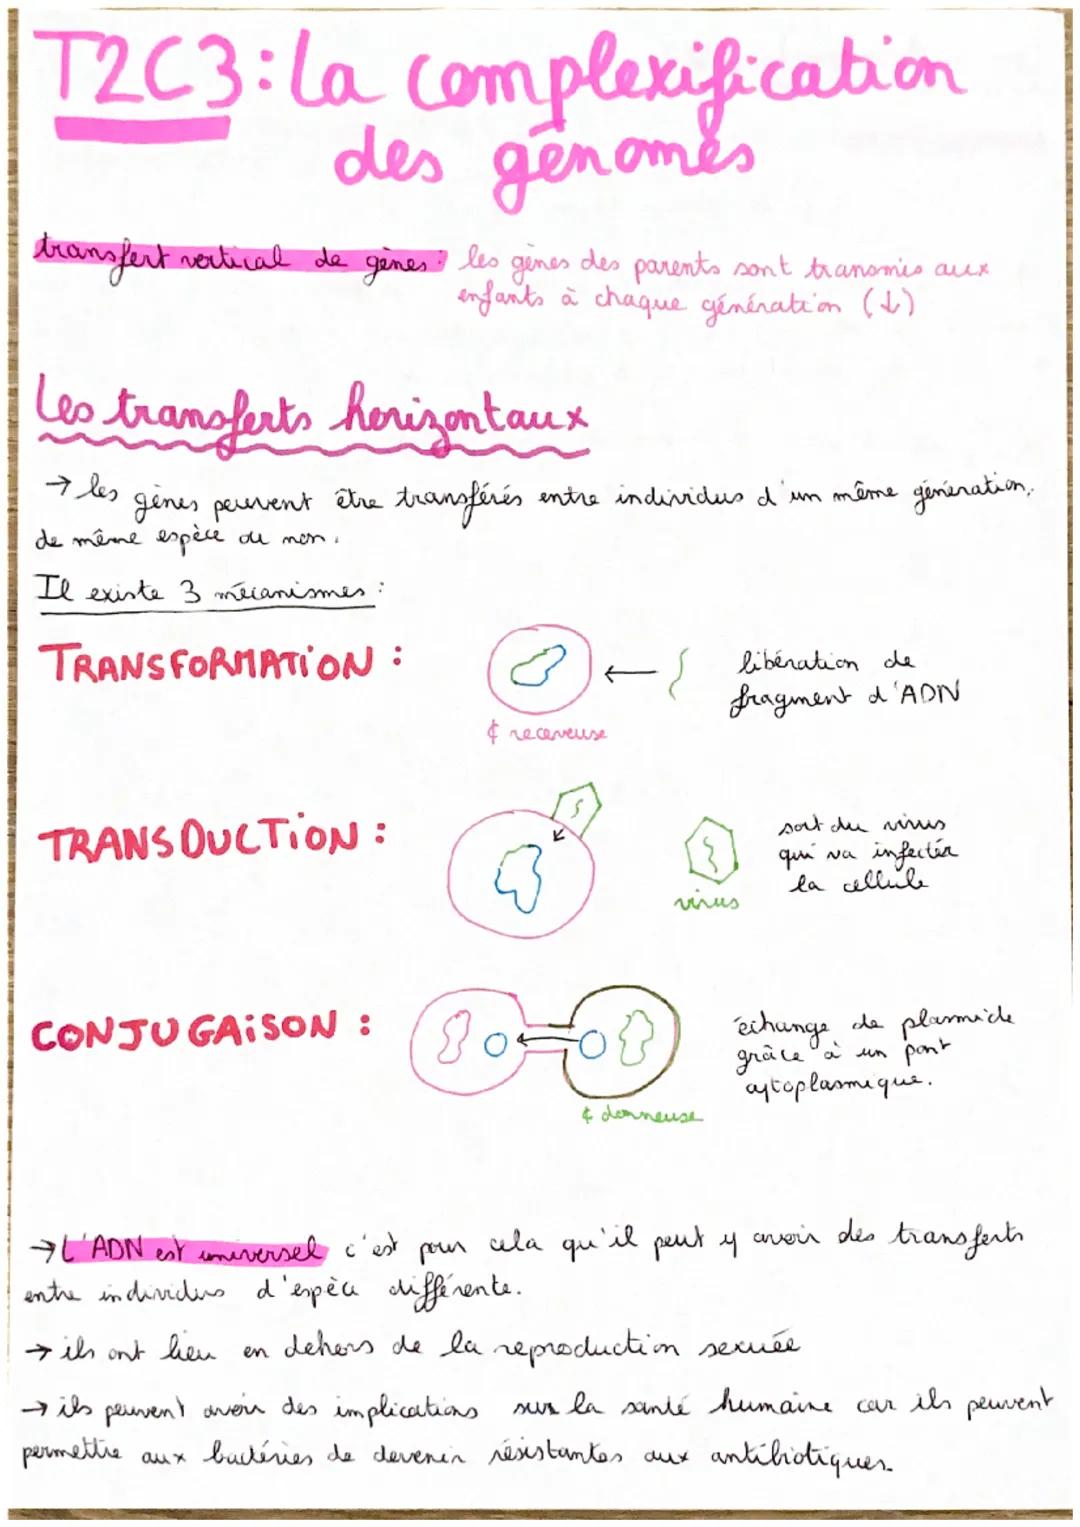 T2C3 : la complexification
des génomes
transfert vertical de gènes : les gènes des parents sont transmis aux
enfants à chaque génération (↓)
Les transferts horizontaux
→ les gènes peuvent être transférés entre individus d'un même génération,
de même espèce ou non.
Il existe 3 mécanismes :
TRANSFORMATION :
libération de
fragment d'ADN
¢ receveuse
TRANSDUCTION :
sort du virus
qui va infecter
la cellule
virus
CONJUGAISON :
échange de plasmide
grâce à un pont
cytoplasmique.
¢ donneuse
→ L'ADN est universel c'est pour cela qu'il peut y avoir des transferts
entre individus d'espèce différente.
→ ils ont lieu en dehors de la reproduction sexuée
→ ils peuvent avoir des implications sur la santé humaine car ils peuvent
permettre aux bactéries de devenir résistantes aux antibiotiques.